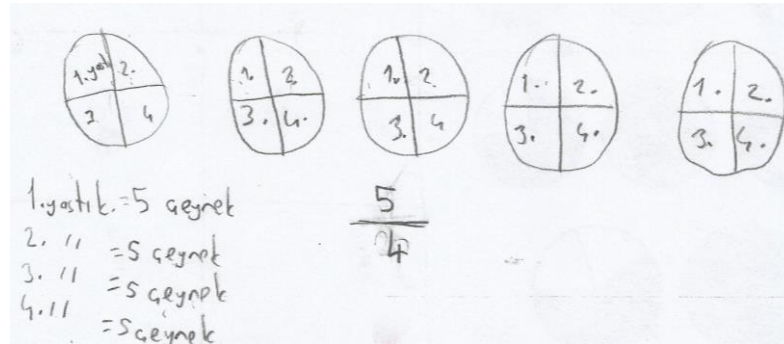 1.yast 2. 3. 4
1. 2. 3. 4.
1. 2. 3. 4
1. 2. 3. 4.
1. 2. 3. 4.
1.yastık.=5 çeyrek
2. " =5 çeyrek
3. " =5 çeyrek
4. " =5 çeyrek
5
4